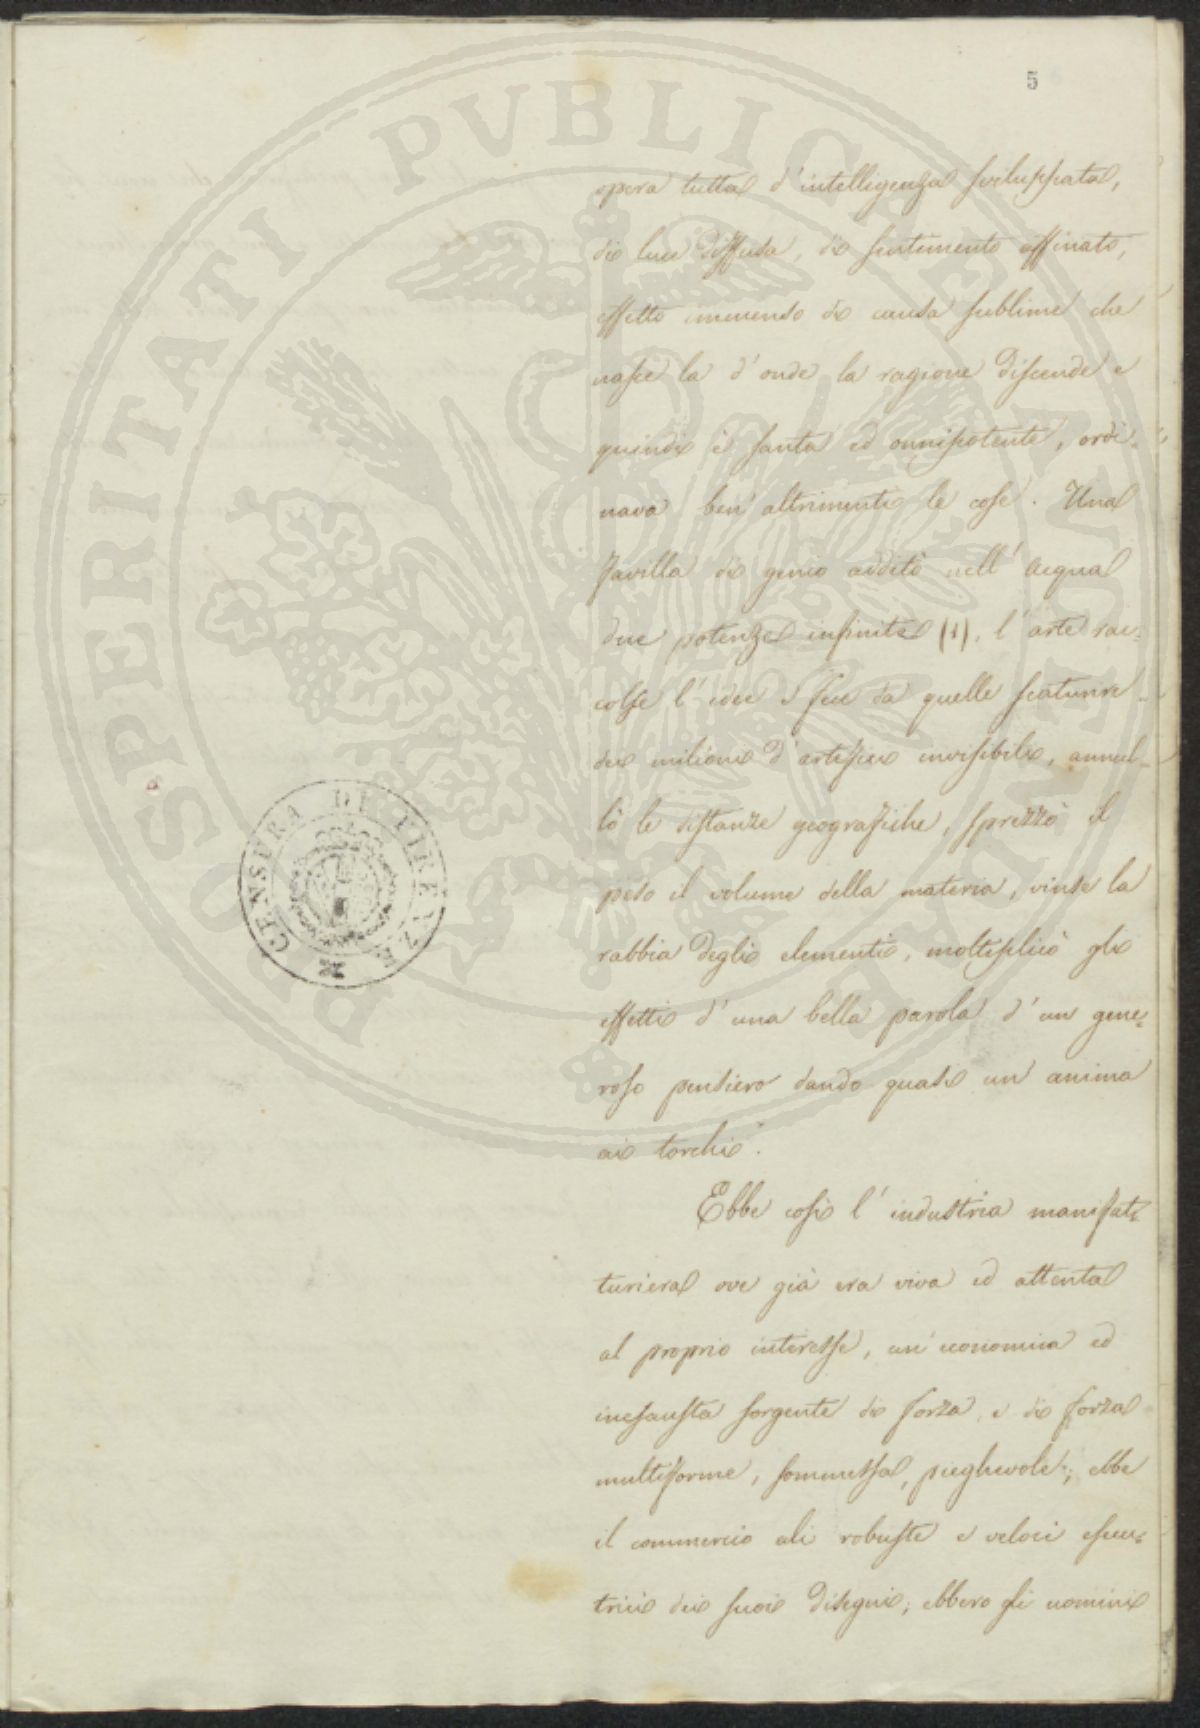 5
opera tutta d'intelligenza sviluppata,
di luce diffusa, di sentimento affinato,
effetto immenso di causa sublime che
nasce la d'onde la ragione discende e
quindi è santa ed onnipotente, ordi-
nava ben altrimenti le cose. Una
favilla di genio additò nell'acqua
due potenze infinite (1), l'arte rac-
colse l'idee e fece da quelle scaturire
dei milioni d'artefici invisibili, annul-
lò le distanze geografiche, sprezzò il
peso il volume della materia, vinse la
rabbia degli elementi, moltiplicò gli
effetti d'una bella parola d'un gene-
roso pensiero dando quasi un'anima
ai torchi.
Ebbe così l'industria manifat-
turiera ove già era viva ed attenta
al proprio interesse, un'economica ed
inesausta sorgente di forza, e di forza
multiforme, sommessa, pieghevole; ebbe
il commercio ali robuste e veloci esecu-
trici dei suoi disegni; ebbero gli uomini
CENSURA DI FIRENZE
PROSPERITATI PVBLICAE AVGENDAE